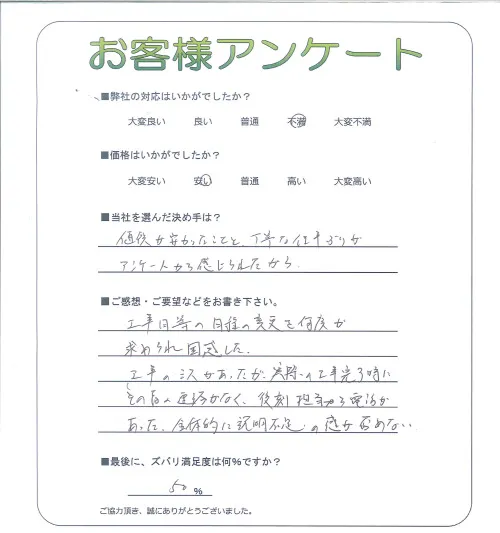 お客様アンケート
■弊社の対応はいかがでしたか？
大変良い 良い 普通 不満 大変不満
■価格はいかがでしたか？
大変安い 安い 普通 高い 大変高い
■当社を選んだ決め手は？
価格が安かったことと、丁寧な仕事ぶりが
アンケートから感じられたから。
■ご感想・ご要望などをお書き下さい。
工事日等の日程の変更を何度か
求められ困惑した。
工事のミスがあったが、実際の工事完了時に
その旨の連絡がなく、後刻担当から電話が
あった。全体的に説明不足の感が否めない
■最後に、ズバリ満足度は何％ですか？
50 ％
ご協力頂き、誠にありがとうございました。